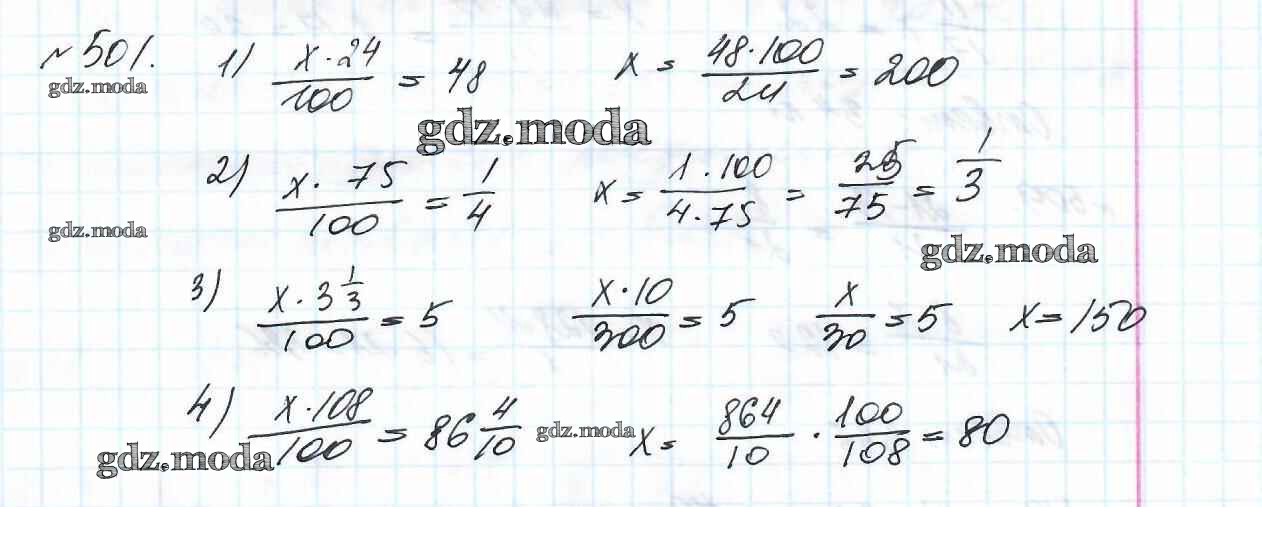 № 501. 1) x·24/100 = 48 x = 48·100/24 = 200
gdz.moda
gdz.moda
2) x·75/100 = 1/4 x = 1·100/4·75 = 25/75 = 1/3
gdz.moda
gdz.moda
3) x·3 1/3/100 = 5 x·10/300 = 5 x/30 = 5 x = 150
4) x·108/100 = 86 4/10 x = 864/10 · 100/108 = 80
gdz.moda
gdz.moda